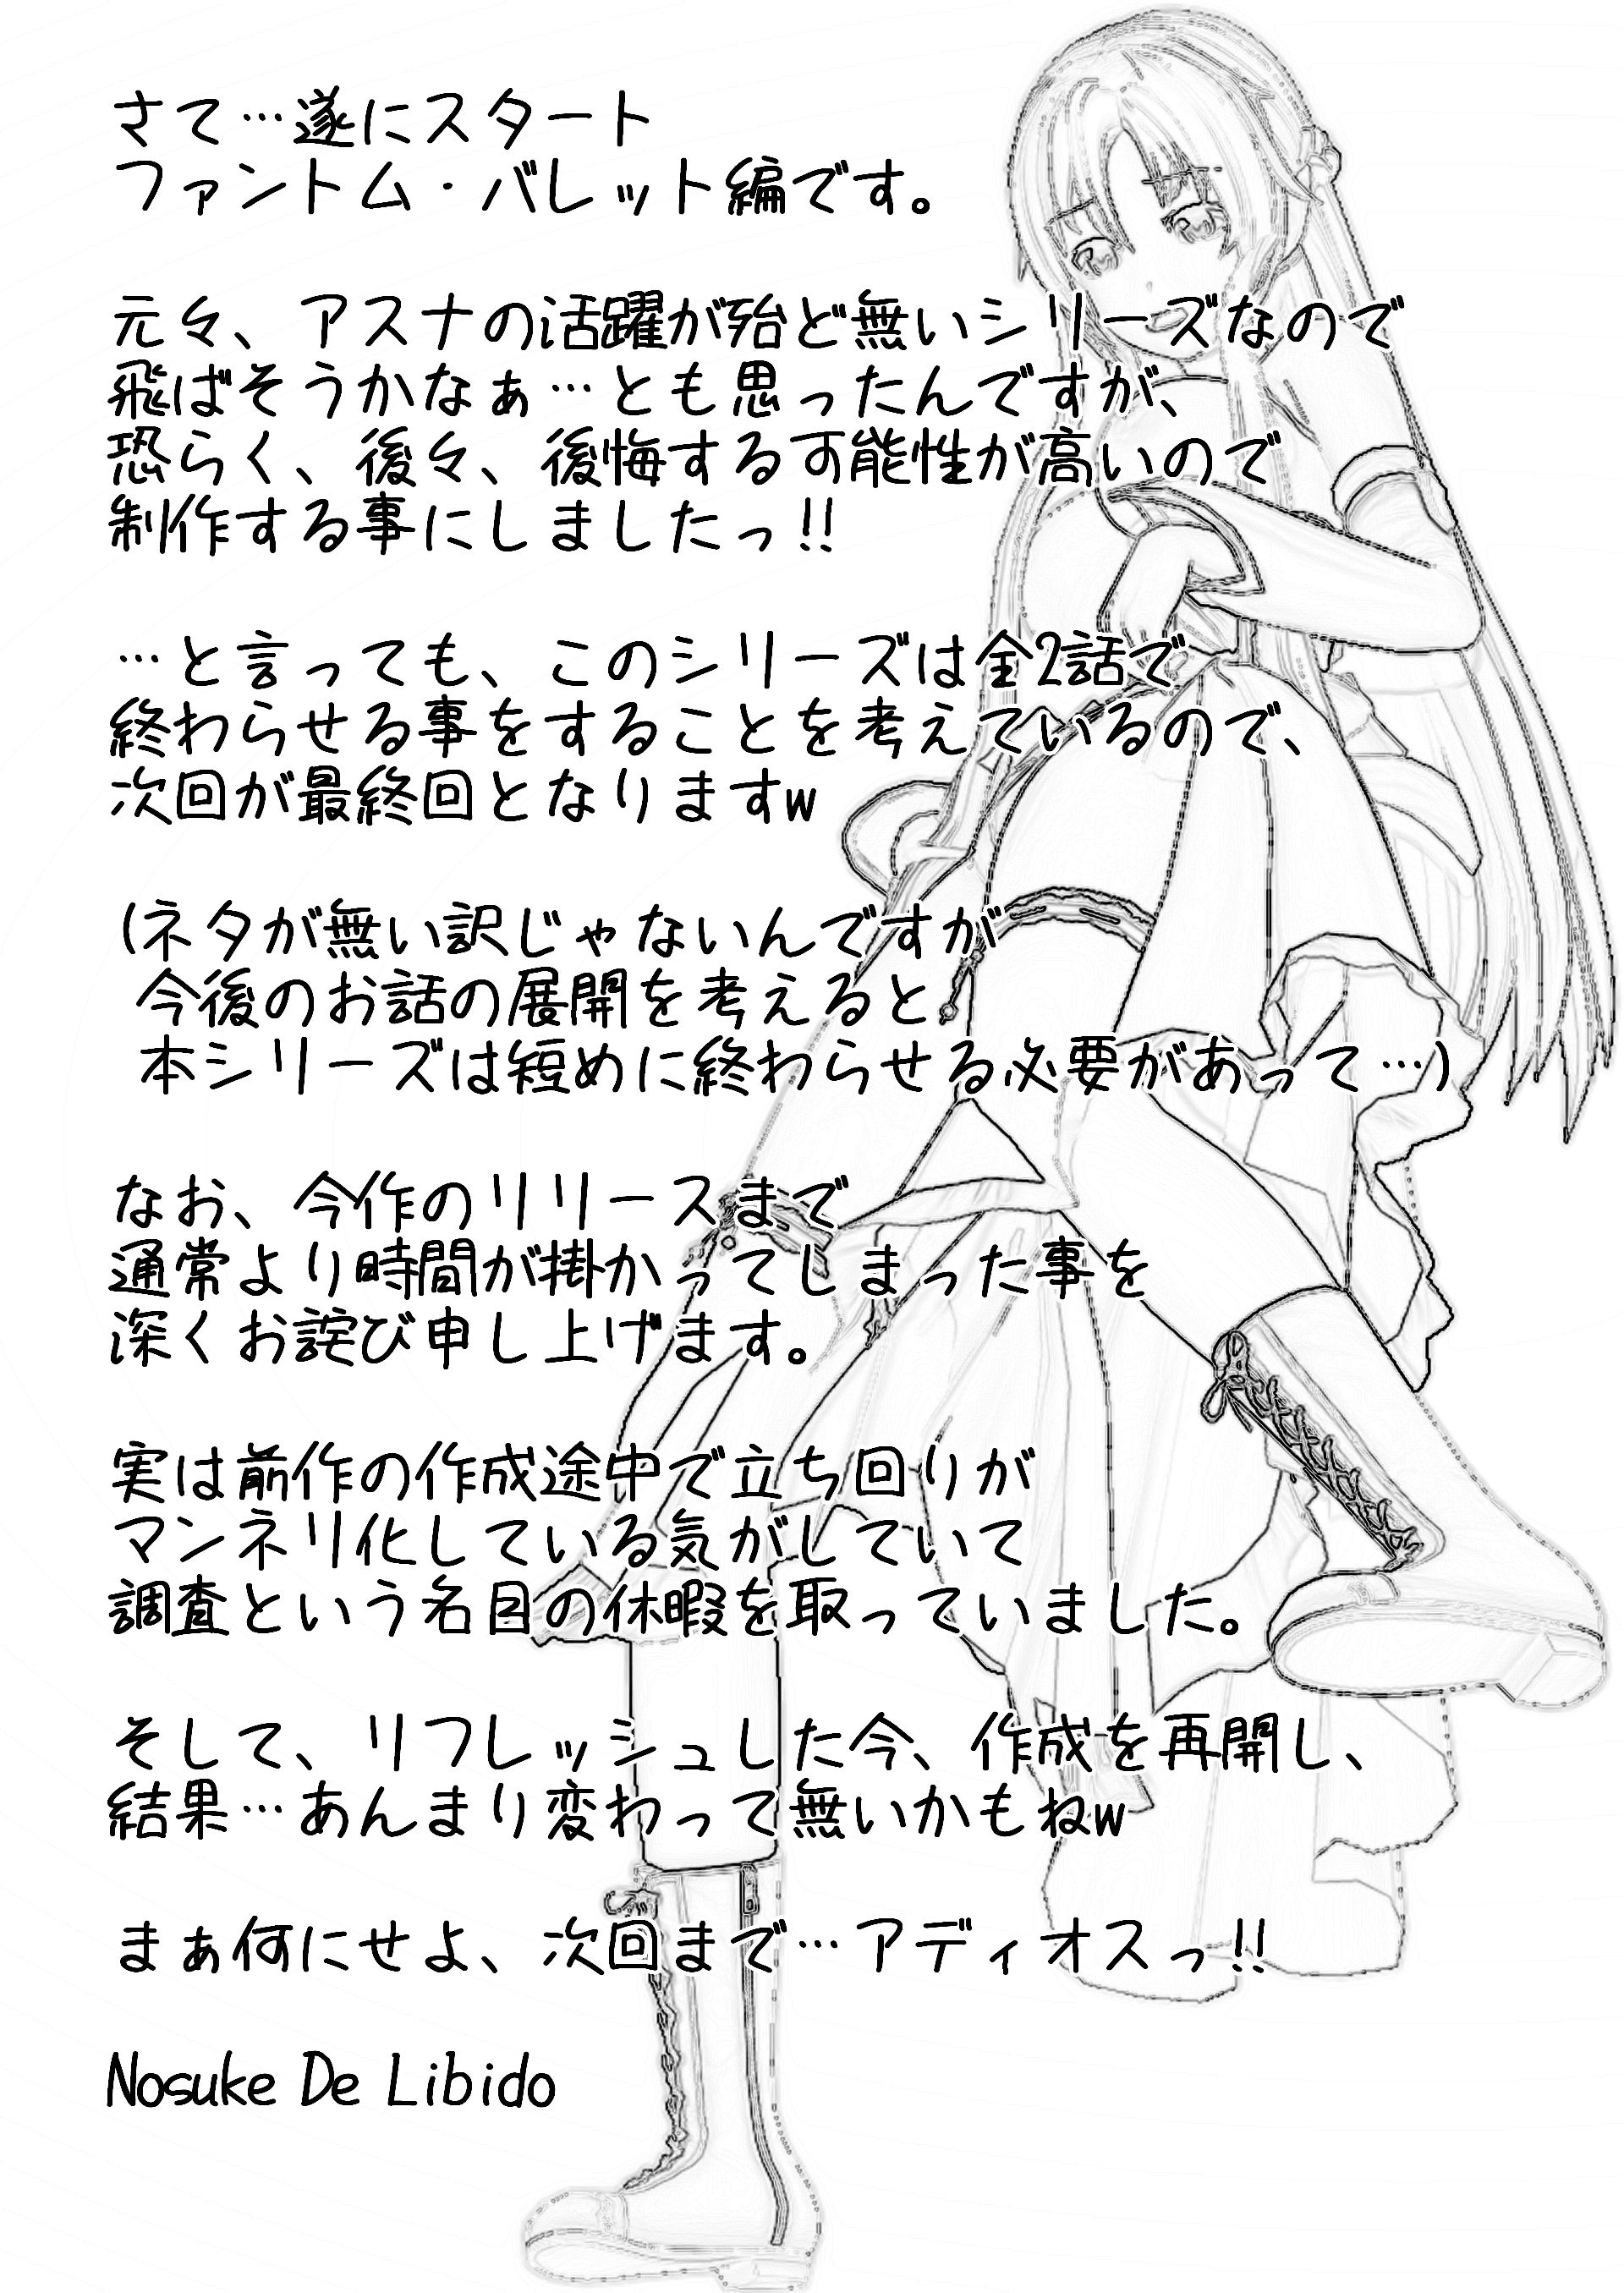 さて…遂にスタート
ファントム・バレット編です。
元々、アスナの活躍が殆ど無いシリーズなので
飛ばそうかなぁ…とも思ったんですが、
恐らく、後々、後悔する可能性が高いので
制作する事にしましたっ!!
…と言っても、このシリーズは全2話で
終わらせる事をすることを考えているので、
次回が最終回となりますw
(ネタが無い訳じゃないんですが
今後のお話の展開を考えると
本シリーズは短めに終わらせる必要があって…)
なお、今作のリリースまで
通常より時間が掛かってしまった事を
深くお詫び申し上げます。
実は前作の作成途中で立ち回りが
マンネリ化している気がしていて
調査という名目の休暇を取っていました。
そして、リフレッシュした今、作成を再開し、
結果…あんまり変わって無いかもねw
まぁ何にせよ、次回まで…アディオスっ!!
Nosuke De Libido